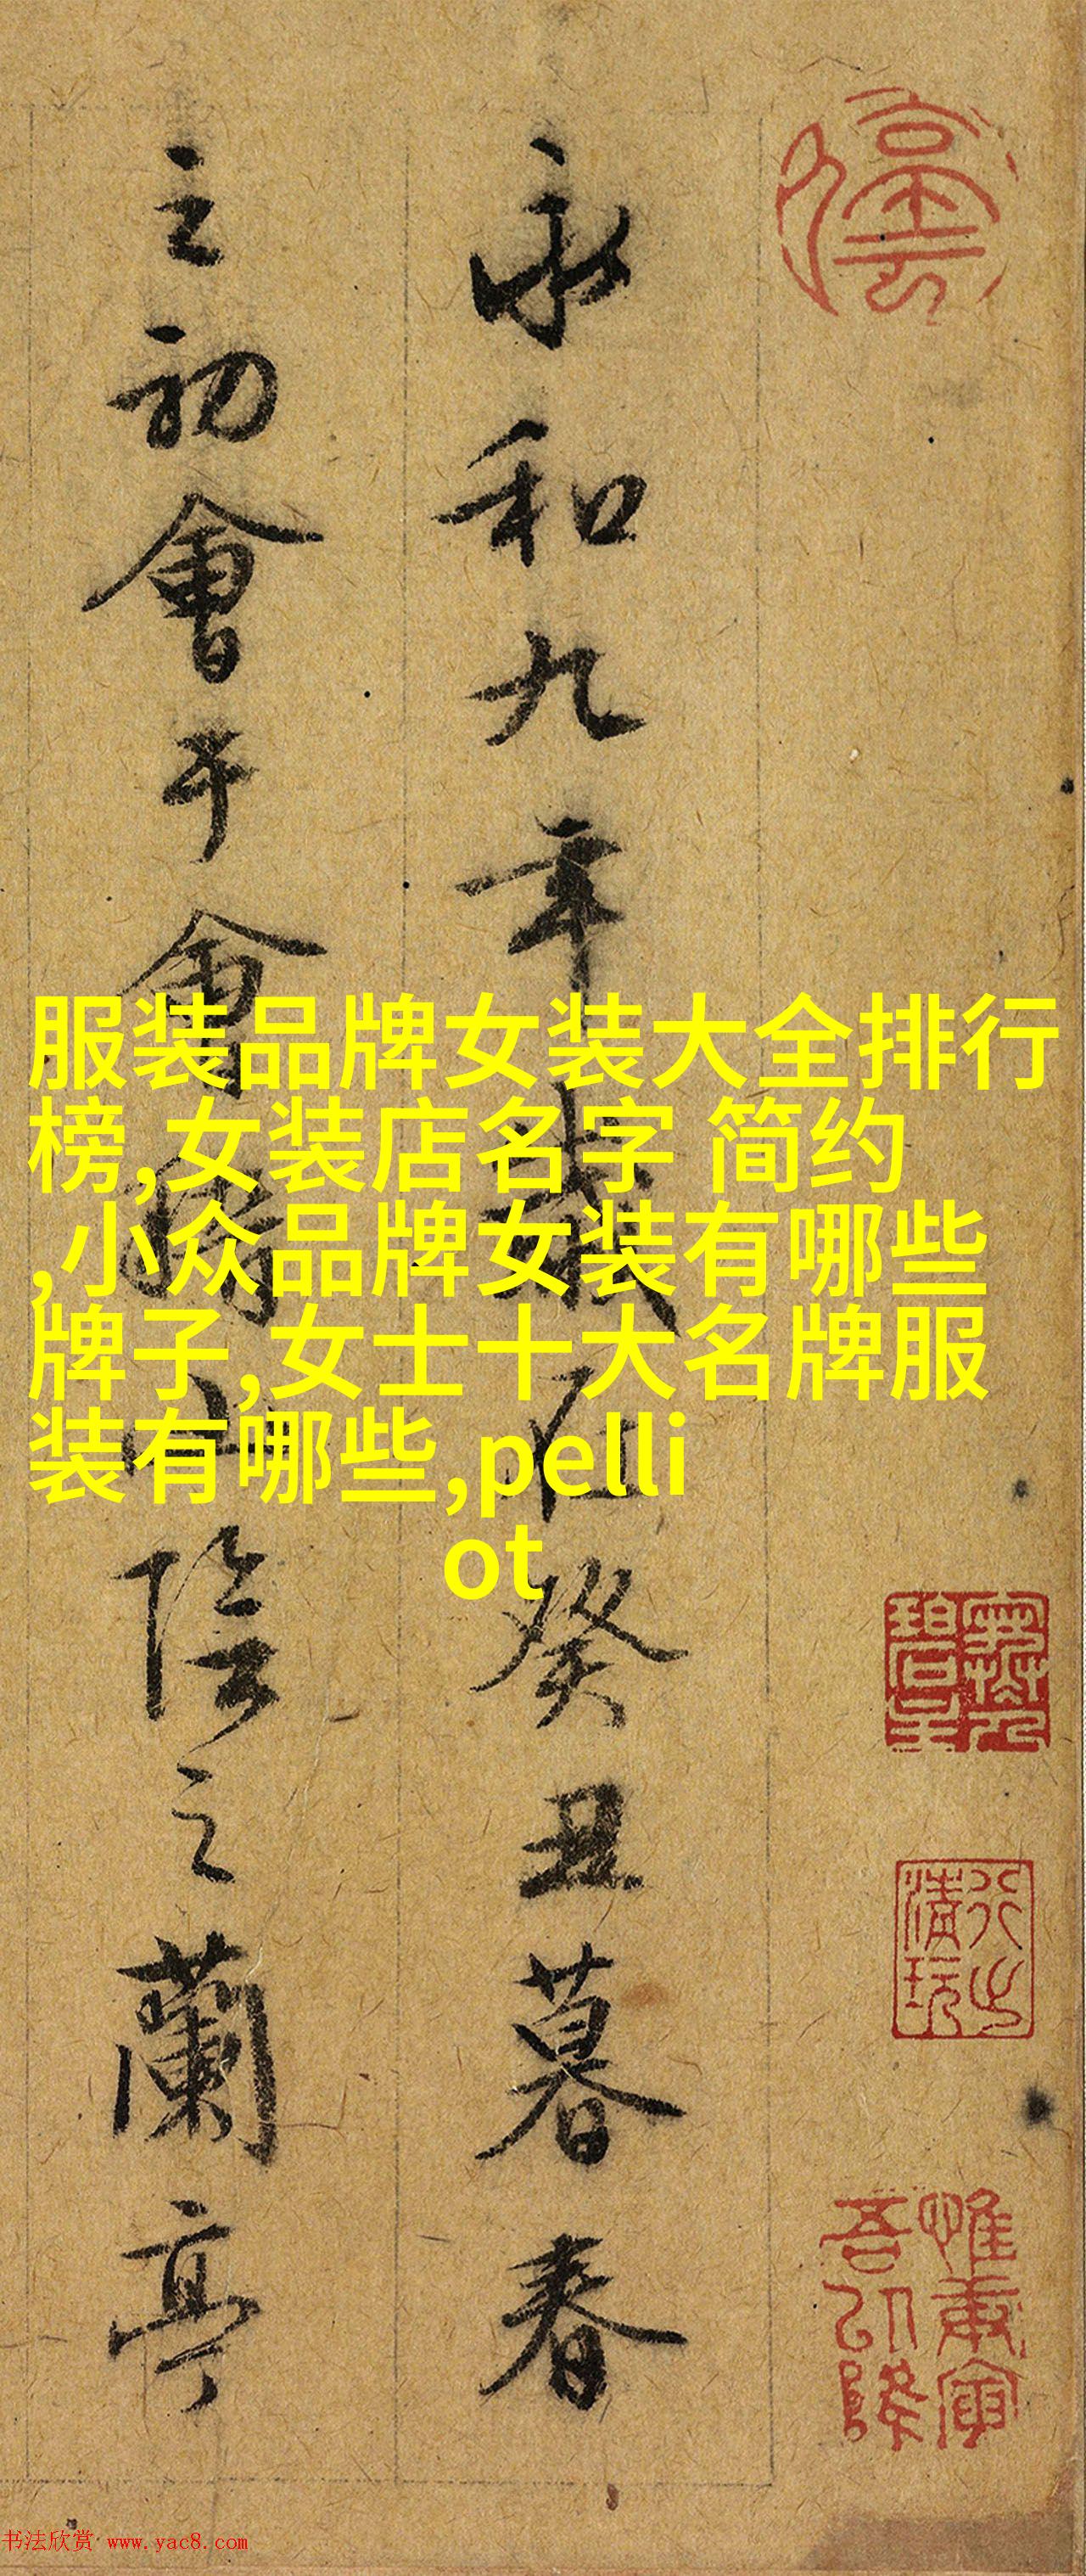 永和九年歲在癸丑暮春
之初會于會稽山陰之蘭亭
服装品牌女装大全排行
榜,女装店名字 简约
,小众品牌女装有哪些
牌子,女士十大名牌服
装有哪些,pelli
ot
清玩
书法欣赏 www.yac8.com